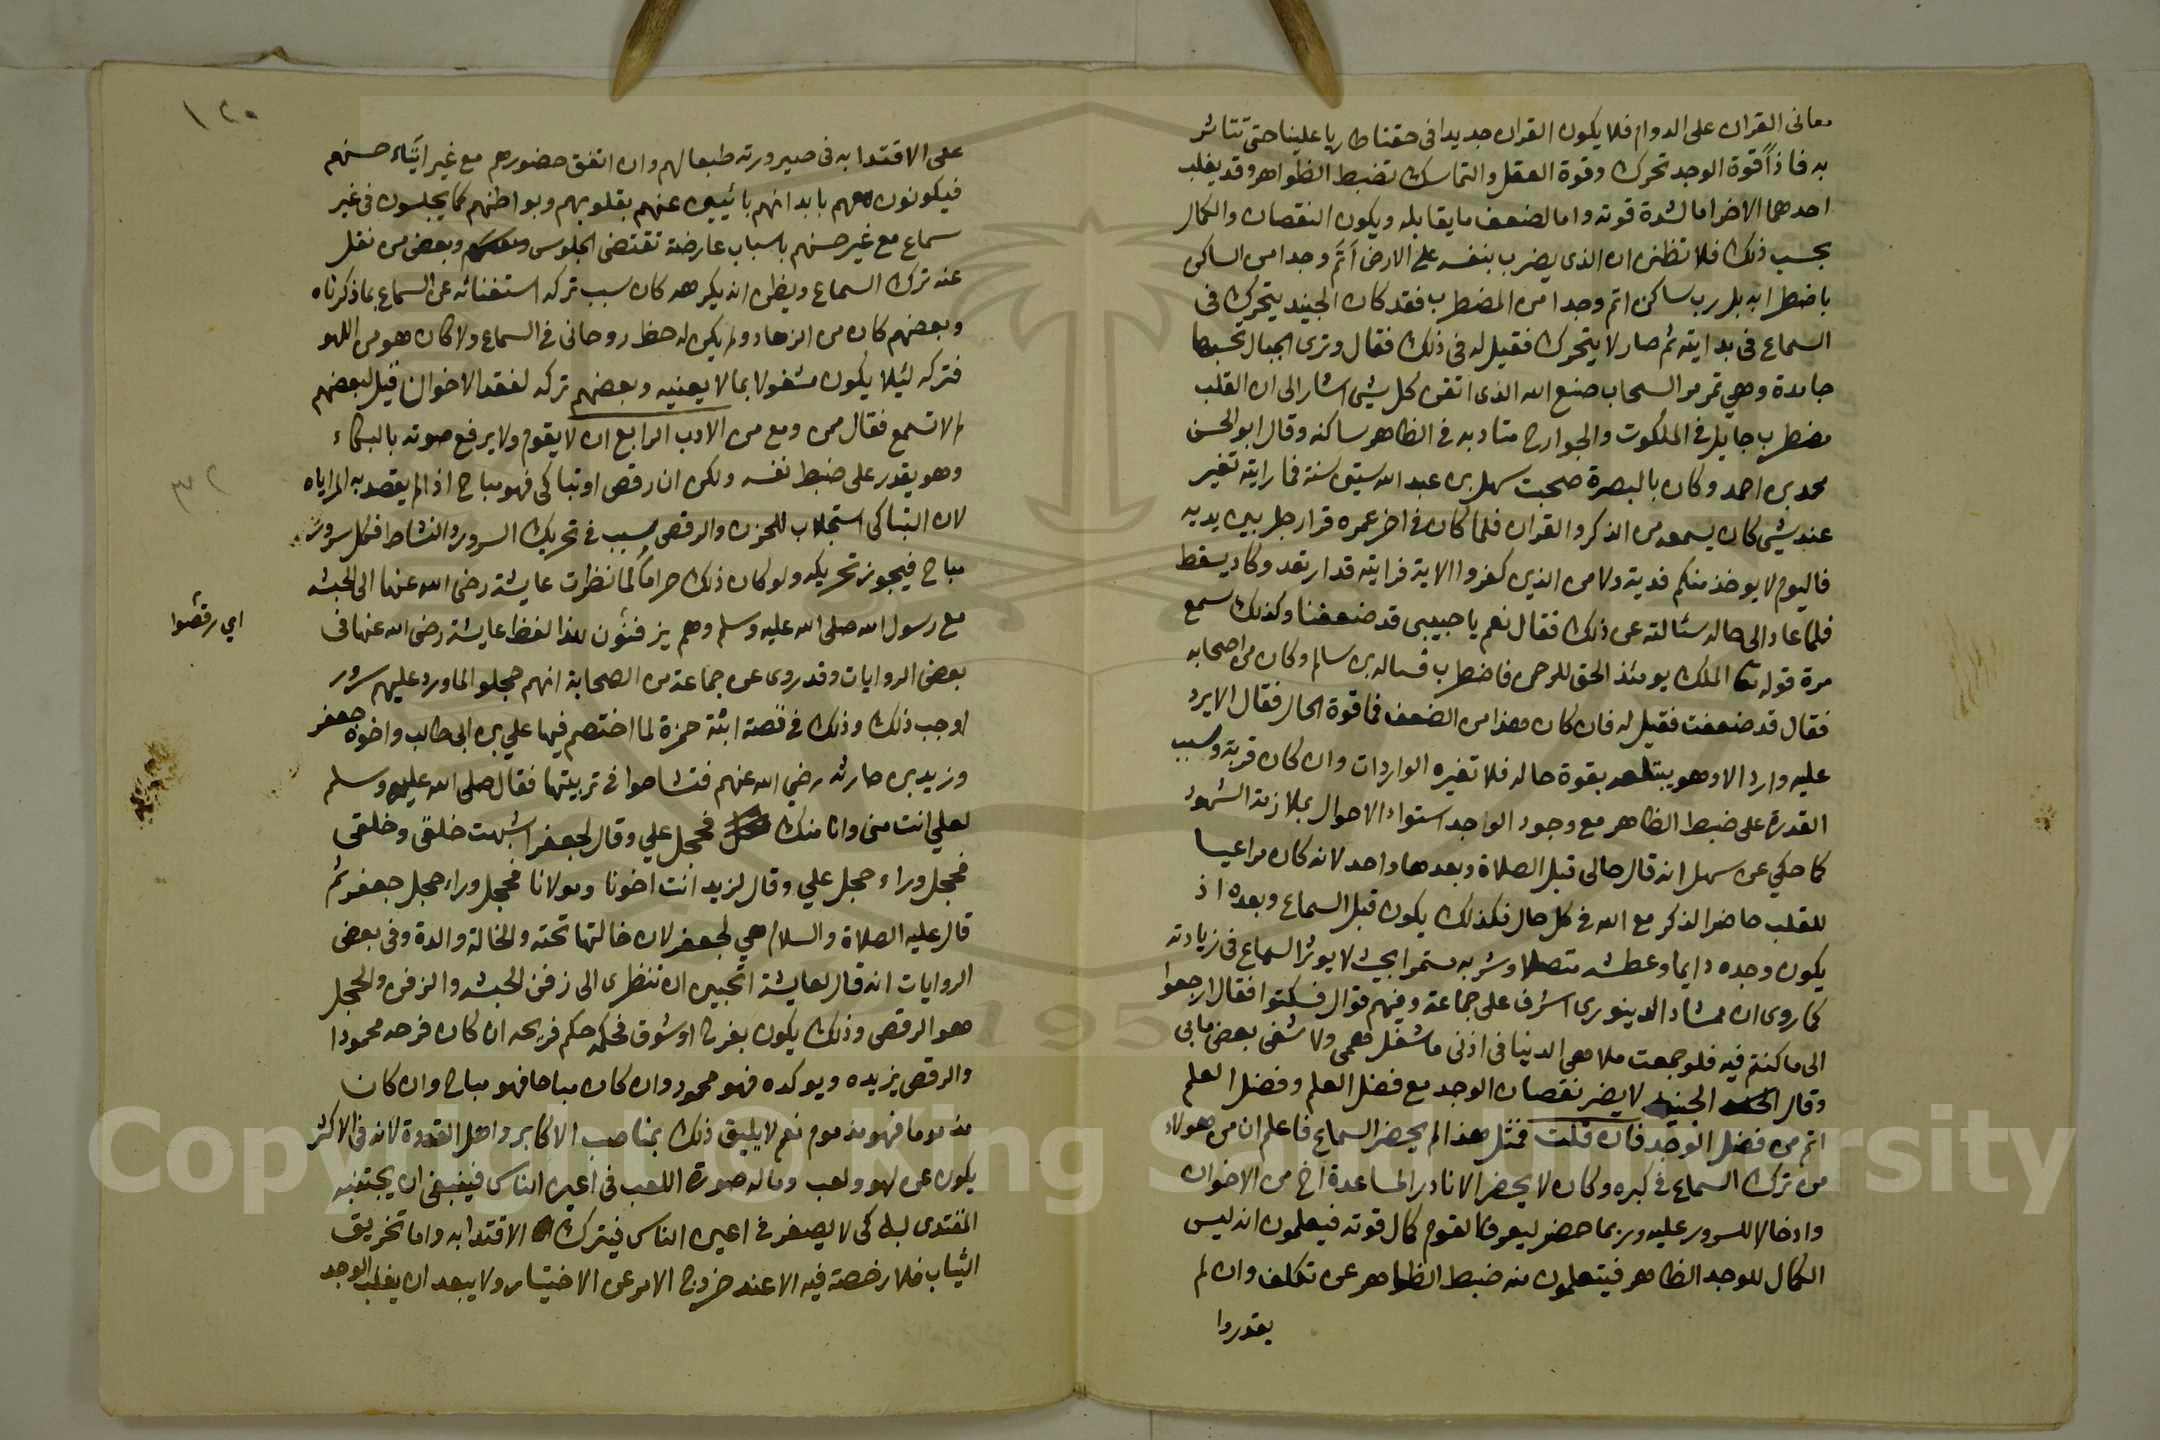 معانى القران على الدوام فلا يكون القران جديدا فى حقنا طاريا علينا حتى تتاثر
به فاذاً قوة الوجد تحرك وقوة العقل والتماسك تضبط الظواهر وقد يغلب
احدهما الاخر اما لشدة قوته واما لضعف ما يقابله ويكون النقصان والكمال
بحسب ذلك فلا تظنن ان الذى يضرب بنفسه على الارض أتم وجدا من الساكن
باضطرابه بل رب ساكن اتم وجدا من المضطرب فقد كان الجنيد يتحرك فى
السماع فى بدايته ثم صار لا يتحرك فقيل له فى ذلك فقال وترى الجبال تحسبها
جامدة وهي تمر مر السحاب صنع الله الذى اتقن كل شيئ اشار الى ان القلب
مضطرب جايل فى الملكوت والجوارح متادبه فى الظاهر ساكنه وقال ابو الحسن
محمد بن احمد وكان بالبصرة صحبت سهل بن عبد الله ستين سنة فما رايته تغير
عند شيئ كان يسمعه من الذكر والقران فلما كان فى اخر عمره قرا رجل بين يديه
فاليوم لا يوخذ منكم فدية ولا من الذين كفروا الاية فرايته قد ارتعد وكاد يسقط
فلما عاد الى حاله سئالته عن ذلك فقال نعم يا حبيبى قد ضعفنا وكذلك سمع
مرة قوله تعا الملك يومئذ الحق للرحمن فاضطرب فساله بن سالم وكان من اصحابه
فقال قد ضعفت فقيل له فان كان هذا من الضعف فما قوة الحال فقال الا يرد
عليه وارد الا وهو يبتلعه بقوة حاله فلا تغيره الواردات وان كان قوية وسبب
القدرة على ضبط الظاهر مع وجود الواجد استواء الاحوال بملازمة الشهود
كما حكي عن سهل انه قال حالى قبل الصلاة وبعدها واحد لانه كان مراعيا
للقلب حاضر الذكر مع الله فى كل حال فكذلك يكون قبل السماع وبعده اذ
يكون وجده دايما وعطشه متصلا وشربه مستمرا بحيث لا يوثر السماع فى زيادته
كما روى ان ممشاد الدينورى اشرف على جماعة وفيهم قوال فسكتوا فقال ارجعوا
الى ما كنتم فيه فلو جمعت ملاهى الدنيا فى اذنى ما شغل همى ولا شفى بعض مابى
وقال الجنيد لا يضر نقصان الوجد مع فضل العلم وفضل العلم
اتم من فضل الوجد فان قلت فمثل هذا لم يحضر السماع فاعلم ان من هولاء
من ترك السماع فى كبره وكان لا يحضر الا نادرا لمساعدة اخ من الاخوان
وادخالا للسرور عليه وربما حضر ليعرف القوم كمال قوته فيعلمون انه ليس
الكمال للوجد الظاهر فيتعلمون منه ضبط الظاهر عن تكلف وان لم
يقدروا
١٢٠
على الاقتدا به فى صيرورته طبعا لهم وان اتفق حضورهم مع غير ابناء جنسهم
فيكونون معهم بابدانهم بائيين عنهم بقلوبهم وبواطنهم كما يجلسون فى غير
سماع مع غير جنسهم باسباب عارضة تقتضى الجلوس وبعض من نقل
عنه ترك السماع ويظن انه يكرهه كان سبب تركه استغنائه عن السماع بما ذكرناه
وبعضهم كان من الزهاد ولم يكن له حظ روحانى فى السماع ولا كان هو من اللهو
فتركه لئلا يكون مشغولا بما لا يعنيه وبعضهم تركه لفقد الاخوان قيل لبعضهم
لم لا تسمع فقال ممن ومع من الادب الرابع ان لا يقوم ولا يرفع صوته بالبكاء
وهو يقدر على ضبط نفسه ولكن ان رقص او تباكى فهو مباح اذا لم يقصد به المراياه
٣٢
لان التباكى استجلاب للحزن والرقص سبب فى تحريك السرور والنشاط فكل سرور
مباح فيجوز تحريكه ولو كان ذلك حراماً لما نظرت عايشة رضى الله عنها الى الحبشه
مع رسول الله صلى الله عليه وسلم وهم يزفنون هذا لفظ عايشة رضى الله عنها فى
اي رقصوا
بعض الروايات وقد روى عن جماعة من الصحابة انهم حجلوا لما ورد عليهم سرور
اوجب ذلك وذلك فى قصة ابنة حمزة لما اختصم فيها علي بن ابى طالب واخوه جعفر
وزيد بن حارثه رضي الله عنهم فتشاحوا فى تربيتها فقال صلى الله عليه وسلم
لعلي انت منى وانا منك فحجل علي وقال لجعفر اشبهت خلقى وخلقى
فحجل وراء حجل علي وقال لزيد انت اخونا ومولانا فحجل وراء حجل جعفر ثم
قال عليه الصلاة والسلام هي لجعفر لان خالتها تحته والخالة والدة وفى بعض
الروايات انه قال لعايشة اتحبين ان تنظرى الى زفن الحبشه والزفن والحجل
هو الرقص وذلك يكون بفرح او شوق فحكمه حكم فريحه ان كان فرحه محمودا
والرقص يزيده ويوكده فهو محمود وان كان مباحا فهو مباح وان كان
مذموما فهو مذموم نعم لا يليق ذلك بمناصب الاكابر واهل القدوة لانه فى الاكثر
يكون عن لهو ولعب وماله صورة اللعب فى اعين الناس فينبغى ان يجتنبه
المقتدى به كى لا يصغر فى اعين الناس فيترك الاقتدا به واما تخريق
الثياب فلا رخصة فيه الا عند خروج الامر عن الاختيار ولا يبعد ان يغلب الوجد
Copyright © King Saud University
195